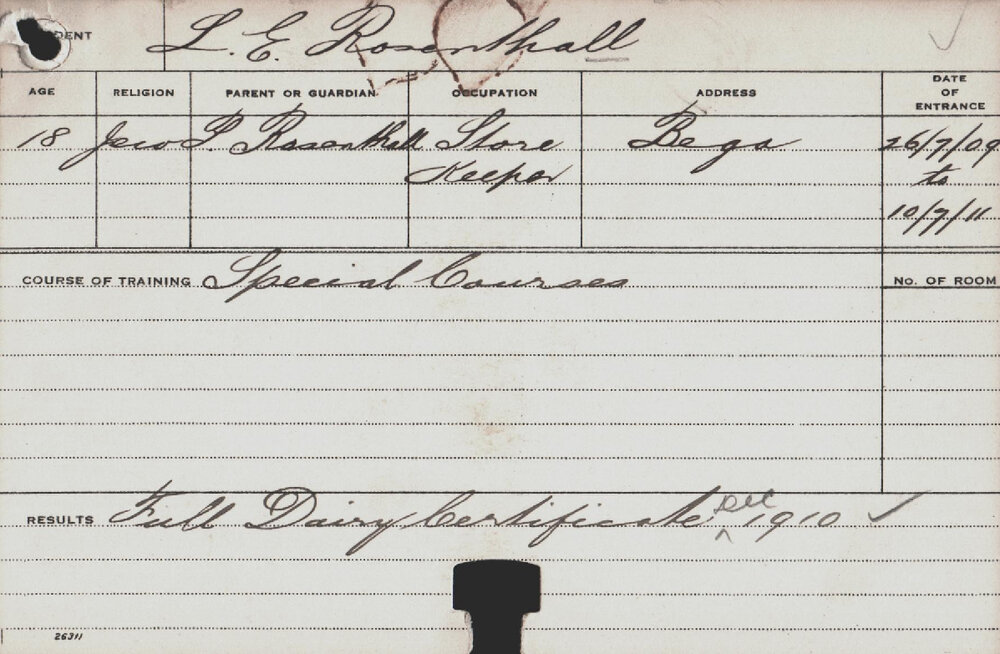 DENT L. E. Rosenthall
AGE RELIGION PARENT OR GUARDIAN OCCUPATION ADDRESS DATE OF ENTRANCE
18 Jew P. Rosenthall Store Bega 26/7/09
Keeper to
10/7/11
COURSE OF TRAINING Special Courses No. OF ROOM
RESULTS Full Dairy Certificate Dec 1910
26311